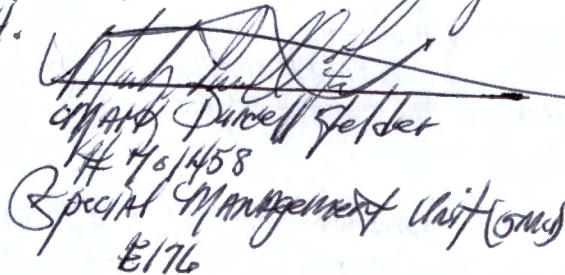 Mark Purcell Felder
# 701458
Special Management Unit (SMU)
E176